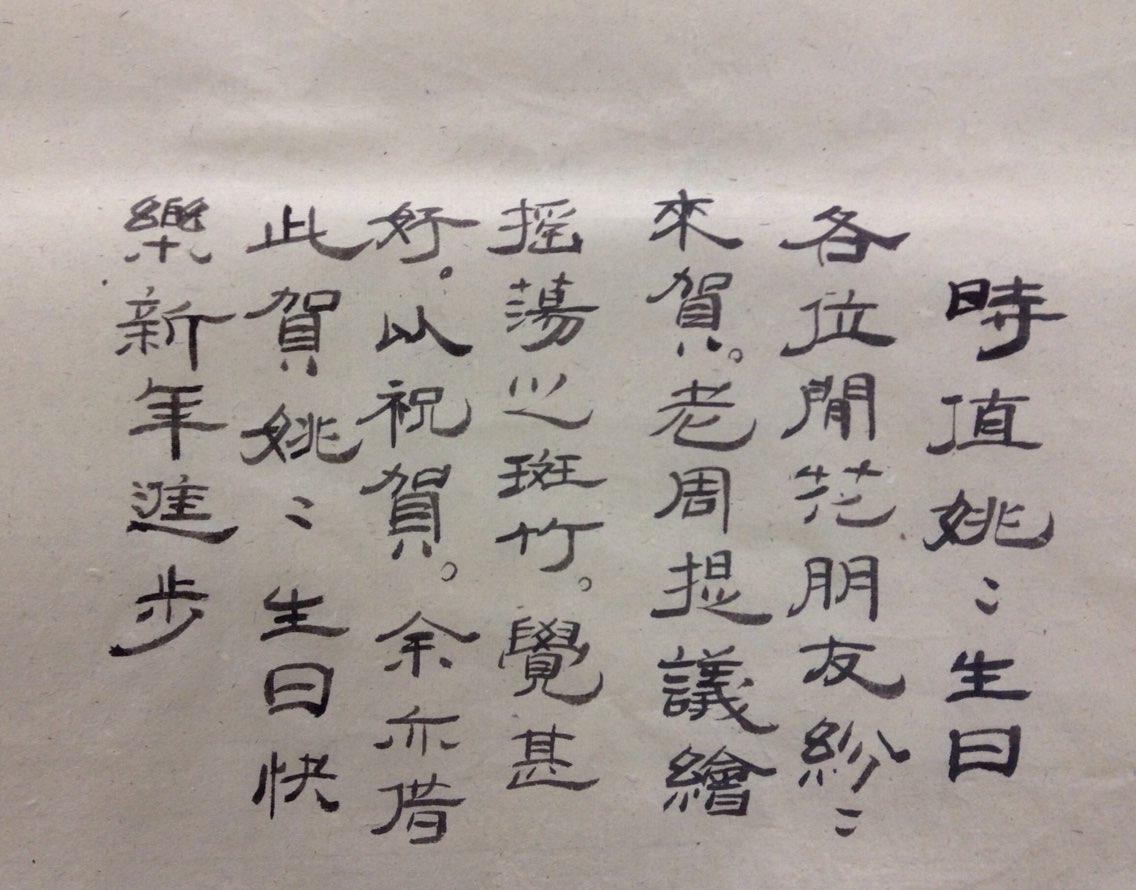 時值姚〻生日
各位閒花朋友紛〻
來賀。老周提議繪
摇蕩之斑竹。覺甚
好。以祝賀。余亦借
此賀姚〻生日快
樂新年進步